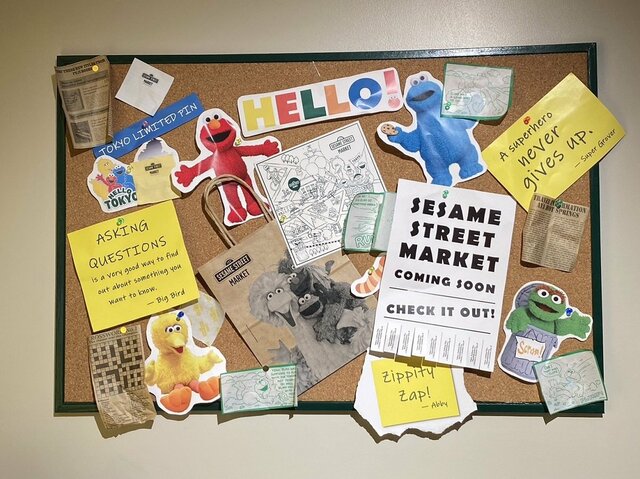 SESAME STREET
MARKET
TOKYO LIMITED PIN
HELLO!
HELLO
TOKYO
SESAME STREET
MARKET
A superhero
never
gives up.
— Super Grover
ASKING
QUESTIONS
is a very good way to find
out about something you
want to know.
— Big Bird
SESAME STREET
MARKET
SESAME
STREET
MARKET
COMING SOON
CHECK IT OUT!
Scram!
Zippity
Zap!
— Abby